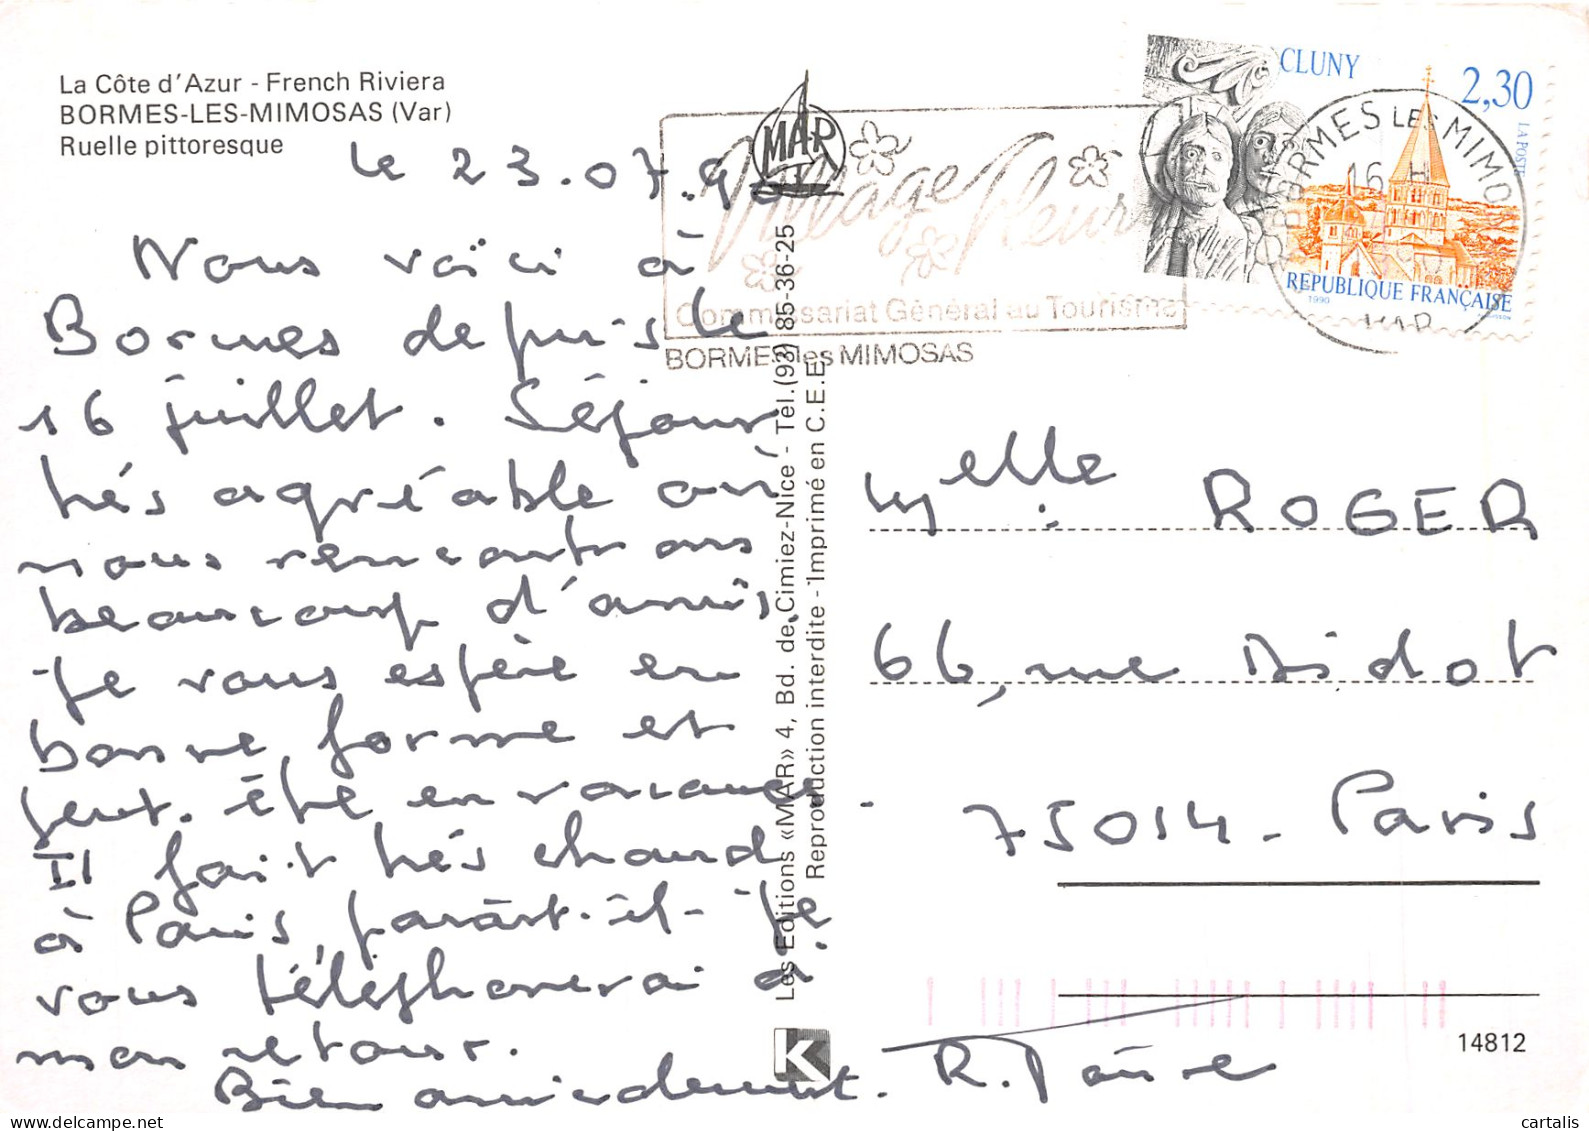 La Côte d'Azur - French Riviera
BORMES-LES-MIMOSAS (Var)
Ruelle pittoresque
le 23.07.90
Nous voici à
Bormes depuis le
16 juillet. Séjour
très agréable où
nous rencontrons
beaucoup d'amis,
Je vous espère en
bonne forme et
peut-être en vacances -
Il fait très chaud
à Paris, paraît-il - Je
vous téléphonerai à
mon retour.
Bien amicalement. R.
MAR
Village fleuri
Commissariat Général au Tourisme
BORMES les MIMOSAS
CLUNY
2,30
LA POSTE
REPUBLIQUE FRANÇAISE
1990
BORMES LES MIMO
16 H
VAR
Les Editions «MAR» 4, Bd. de Cimiez-Nice - Tél.(93) 85-36-25
Reproduction interdite - Imprimé en C.E.E.
Melle ROGER
66, rue Didot
75014 - Paris
K
14812
cartalis